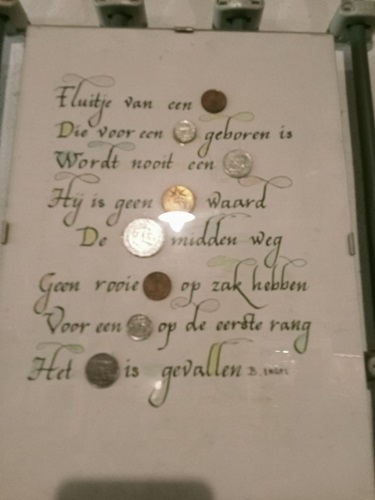 Fluitje van een
Die voor een geboren is
Wordt nooit een
Hij is geen waard
De midden weg
Geen rooie op zak hebben
Voor een op de eerste rang
Het is gevallen